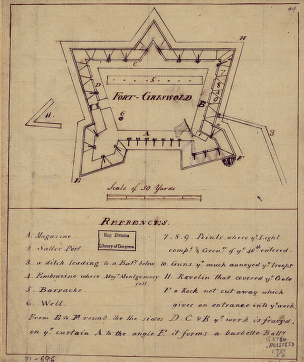 H
C
5
D
FORT-GRISWOLD
B
6
H.
A
3
E
F
Scale of 30 Yards
REFERENCES.
1. Magazine
2. Salley Port
3. a ditch leading to a Batty below
4. Embrasure where Majr Montgomery fell
5. Barracks
6. Well.
7. 8. 9. Points where ye Light
compy & Grenrs of ye 40th entered
10. Guns yt much annoyed ye troops
11. Ravelin that covered ye Gate
F a Rock not cut away which
gives an entrance into ye work
From E to F round the sides D C & B ye work is fraized,
on ye curtain A to the angle E it forms a barbette Batty
Map Division
Library of Congress